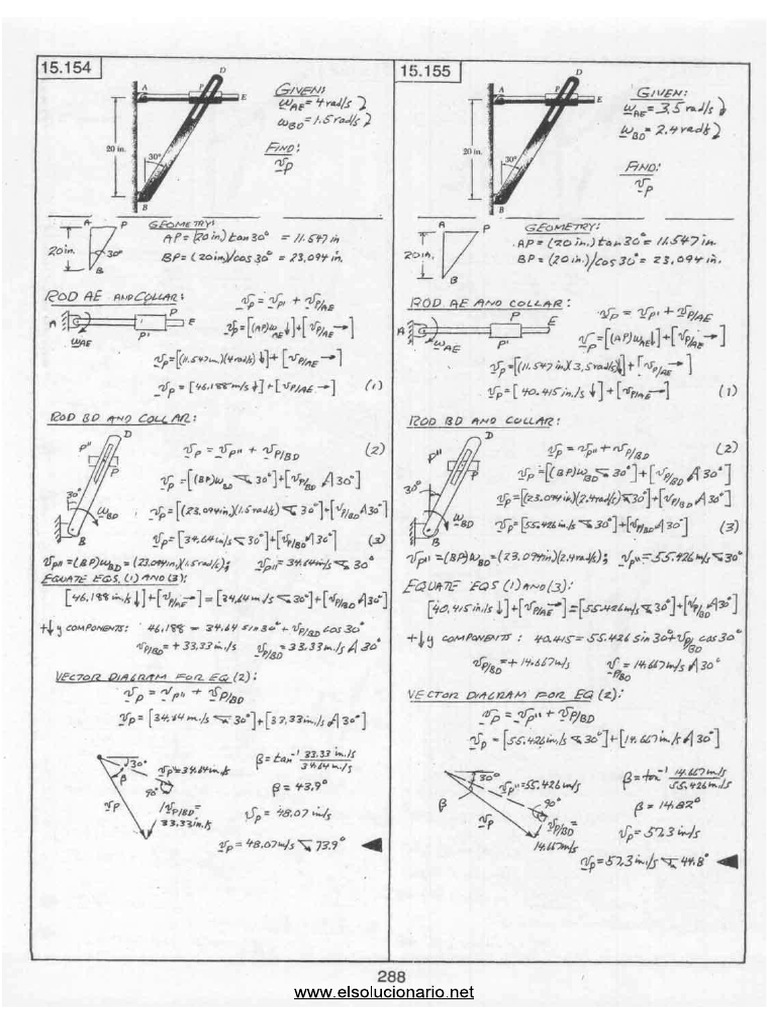 15.154
D
A
P
E
20 in.
30°
B
GIVEN:
ω_AE = 4 rad/s ↻
ω_BD = 1.5 rad/s ↻
FIND:
v_P
GEOMETRY:
A P
20in.
30°
B
AP = (20 in.) tan 30° = 11.547 in
BP = (20in)/cos 30° = 23.094 in.
ROD AE AND COLLAR:
P
A E
P'
ω_AE
v_P = v_P' + v_P/AE
v_P = [(AP)ω_AE ↓] + [v_P/AE →]
v_P = [(11.547in.)(4 rad/s) ↓] + [v_P/AE →]
v_P = [46.188 m/s ↓] + [v_P/AE →] (1)
ROD BD AND COLLAR:
D
P"
P
30°
ω_BD
B
v_P = v_P" + v_P/BD (2)
v_P = [(BP)ω_BD ⦪ 30°] + [v_P/BD ⦫ 30°]
v_P = [(23.094in)(1.5 rad/s) ⦪ 30°] + [v_P/BD ⦫ 30°]
v_P = [34.64 in/s ⦪ 30°] + [v_P/BD ⦫ 30°] (3)
v_P" = (BP)ω_BD = (23.094in.)(1.5 rad/s); v_P" = 34.64 in/s ⦪ 30°
EQUATE EQS. (1) AND (3):
[46.188 in./s ↓] + [v_P/AE →] = [34.64 in/s ⦪ 30°] + [v_P/BD ⦫ 30°]
+↓ y COMPONENTS: 46.188 = 34.64 sin 30° + v_P/BD cos 30°
v_P/BD = + 33.33 in/s v_P/BD = 33.33 in./s ⦫ 30°
VECTOR DIAGRAM FOR EQ (2):
v_P = v_P" + v_P/BD
v_P = [34.64 in./s ⦪ 30°] + [33.33 in./s ⦫ 30°]
30°
β
v_P" = 34.64 in/s
90°
v_P
v_P/BD =
33.33 in./s
β = tan⁻¹ 33.33 in./s
34.64 in./s
β = 43.9°
v_P = 48.07 in/s
v_P = 48.07 in/s ⦪ 73.9°
15.155
D
A
P
E
20 in.
30°
B
GIVEN:
ω_AE = 3.5 rad/s ↻
ω_BD = 2.4 rad/s ↻
FIND:
v_P
GEOMETRY:
A P
20in.
B
AP = (20 in.) tan 30° = 11.547 in.
BP = (20 in.)/cos 30° = 23.094 in.
ROD AE AND COLLAR:
P
A E
P'
ω_AE
v_P = v_P' + v_P/AE
v_P = [(AP)ω_AE ↓] + [v_P/AE →]
v_P = [(11.547 in)(3.5 rad/s) ↓] + [v_P/AE →]
v_P = [40.415 in./s ↓] + [v_P/AE →] (1)
ROD BD AND COLLAR:
D
P"
P
30°
ω_BD
B
v_P = v_P" + v_P/BD (2)
v_P = [(BP)ω_BD ⦪ 30°] + [v_P/BD ⦫ 30°]
v_P = [(23.094in)(2.4 rad/s) ⦪ 30°] + [v_P/BD ⦫ 30°]
v_P = [55.426 in./s ⦪ 30°] + [v_P/BD ⦫ 30°] (3)
v_P" = (BP)ω_BD = (23.094in)(2.4 rad/s); v_P" = 55.426 in/s ⦪ 30°
EQUATE EQS (1) AND (3):
[40.415 in/s ↓] + [v_P/AE →] = [55.426 in/s ⦪ 30°] + [v_P/BD ⦫ 30°]
+↓ y COMPONENTS: 40.415 = 55.426 sin 30° + v_P/BD cos 30°
v_P/BD = + 14.667 in/s v_P/BD = 14.667 in/s ⦫ 30°
VECTOR DIAGRAM FOR EQ (2):
v_P = v_P" + v_P/BD
v_P = [55.426 in./s ⦪ 30°] + [14.667 in/s ⦫ 30°]
30°
β
v_P" = 55.426 in/s
90°
v_P
v_P/BD =
14.667 in/s
β = tan⁻¹ 14.667 in/s
55.426 in/s
β = 14.82°
v_P = 57.3 in/s
v_P = 57.3 in/s ⦪ 44.8°
288
www.elsolucionario.net